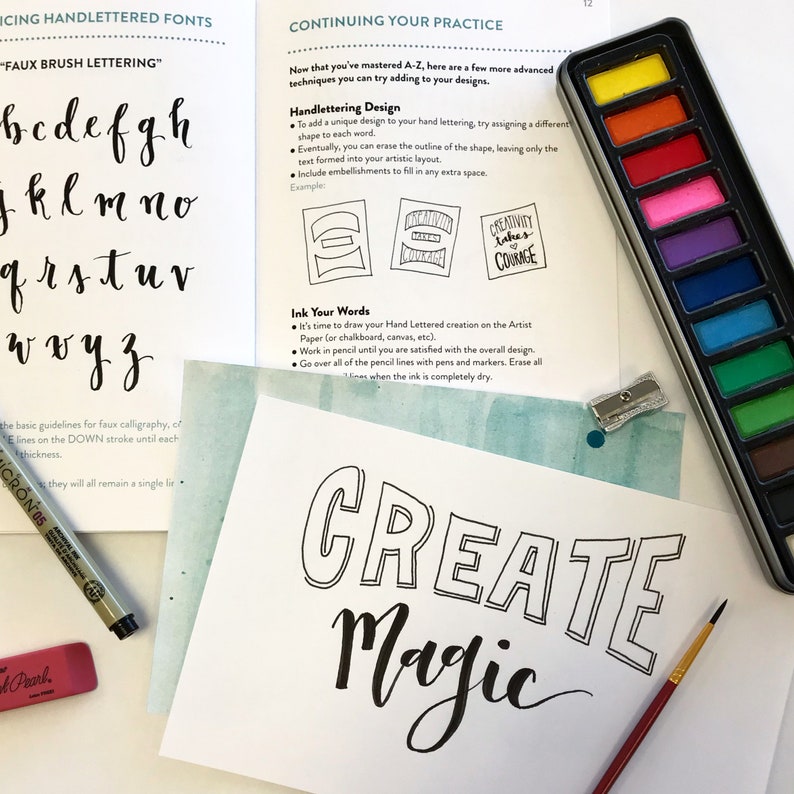 ICING HANDLETTERED FONTS
"FAUX BRUSH LETTERING"
b c d e f g h
j k l m n o
q r s t u v
w x y z
the basic guidelines for faux calligraphy,
E lines on the DOWN stroke until each
thickness.
they will all remain a single
12
CONTINUING YOUR PRACTICE
Now that you've mastered A-Z, here are a few more advanced
techniques you can try adding to your designs.
Handlettering Design
• To add a unique design to your hand lettering, try assigning a different
shape to each word.
• Eventually, you can erase the outline of the shape, leaving only the
text formed into your artistic layout.
• Include embellishments to fill in any extra space.
Example:
CREATIVITY
TAKES
COURAGE
CREATIVITY
takes
COURAGE
Ink Your Words
• It's time to draw your Hand Lettered creation on the Artist
Paper (or chalkboard, canvas, etc).
• Work in pencil until you are satisfied with the overall design.
• Go over all of the pencil lines with pens and markers. Erase all
lines when the ink is completely dry.
MICRON 05
ARCHIVAL INK
Pearl®
CREATE
Magic